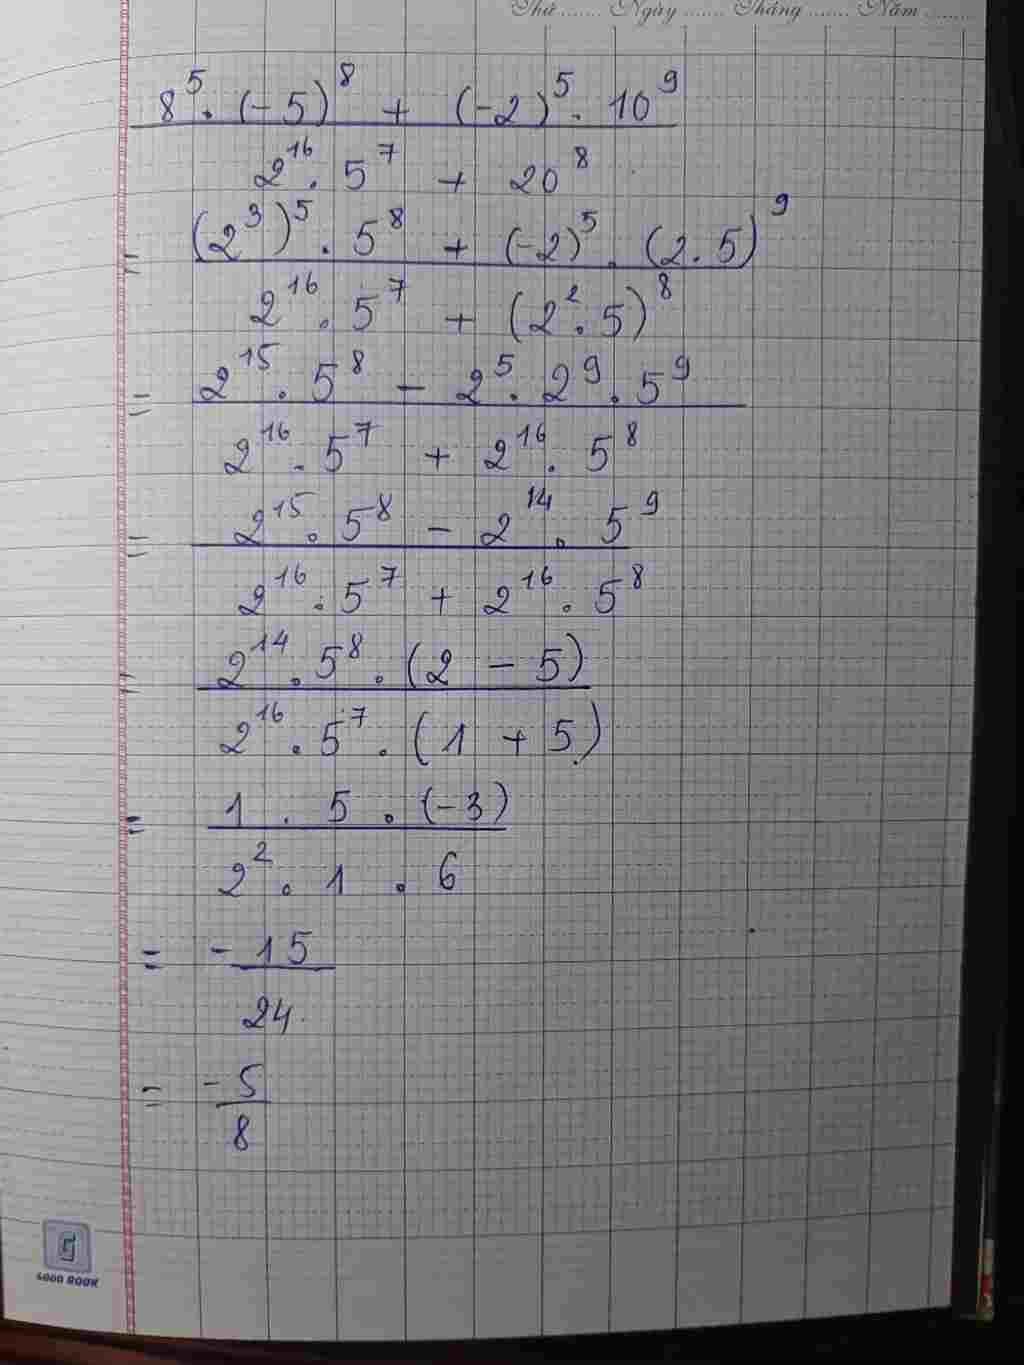 Thứ ....... Ngày ....... Tháng ....... Năm ........
8^5 . (-5)^8 + (-2)^5 . 10^9
2^16 . 5^7 + 20^8
= (2^3)^5 . 5^8 + (-2)^5 . (2.5)^9
2^16 . 5^7 + (2^2 . 5)^8
= 2^15 . 5^8 - 2^5 . 2^9 . 5^9
2^16 . 5^7 + 2^16 . 5^8
= 2^15 . 5^8 - 2^14 . 5^9
2^16 . 5^7 + 2^16 . 5^8
= 2^14 . 5^8 . (2 - 5)
2^16 . 5^7 . (1 + 5)
= 1 . 5 . (-3)
2^2 . 1 . 6
= -15
24
= -5
8
GOOD BOOK